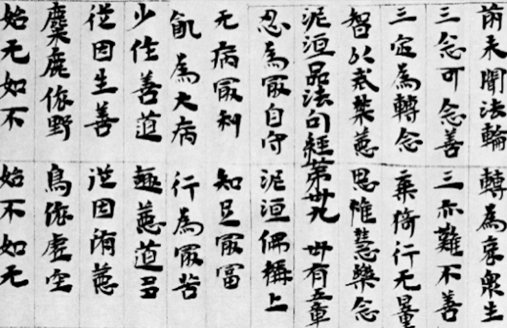 前未聞法輪 轉為哀眾生
三念可念善 三亦難不善
三定為轉念 棄猗行无量
智以戒禁惡 思惟慧樂念
泥洹品法句經第卅九 卅有五章
忍為冣自守 泥洹偶稱上
无病冣利 知足冣富
飢為大病 行為冣苦
少住善道 趣惡道多
從因生善 從因墮惡
麋鹿依野 鳥依虛空
始无如不 始不如无